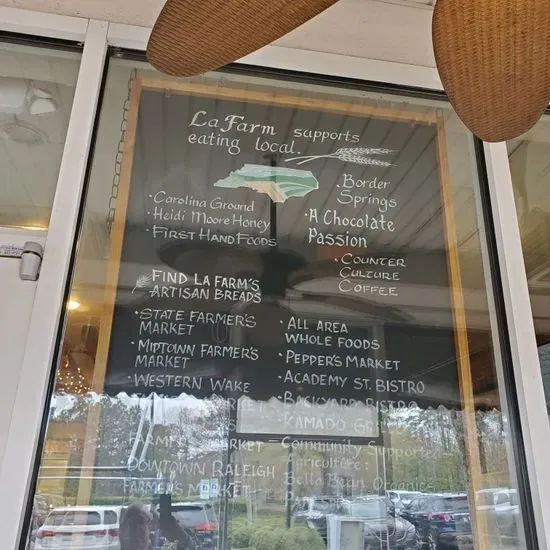 La Farm supports
eating local.
· Carolina Ground
· Heidi Moore Honey
· First Hand Foods
Border
Springs
· A Chocolate
Passion
· Counter
Culture
Coffee
Find La Farm's
Artisan Breads
· State Farmer's
Market
· Midtown Farmer's
Market
· Western Wake
Farmer's Market
Downtown Raleigh
Farmer's Market
· All Area
Whole Foods
· Pepper's Market
· Academy St. Bistro
· Backyard Bistro
Kamado
· Community Supported
Agriculture:
Bella Bean Organics